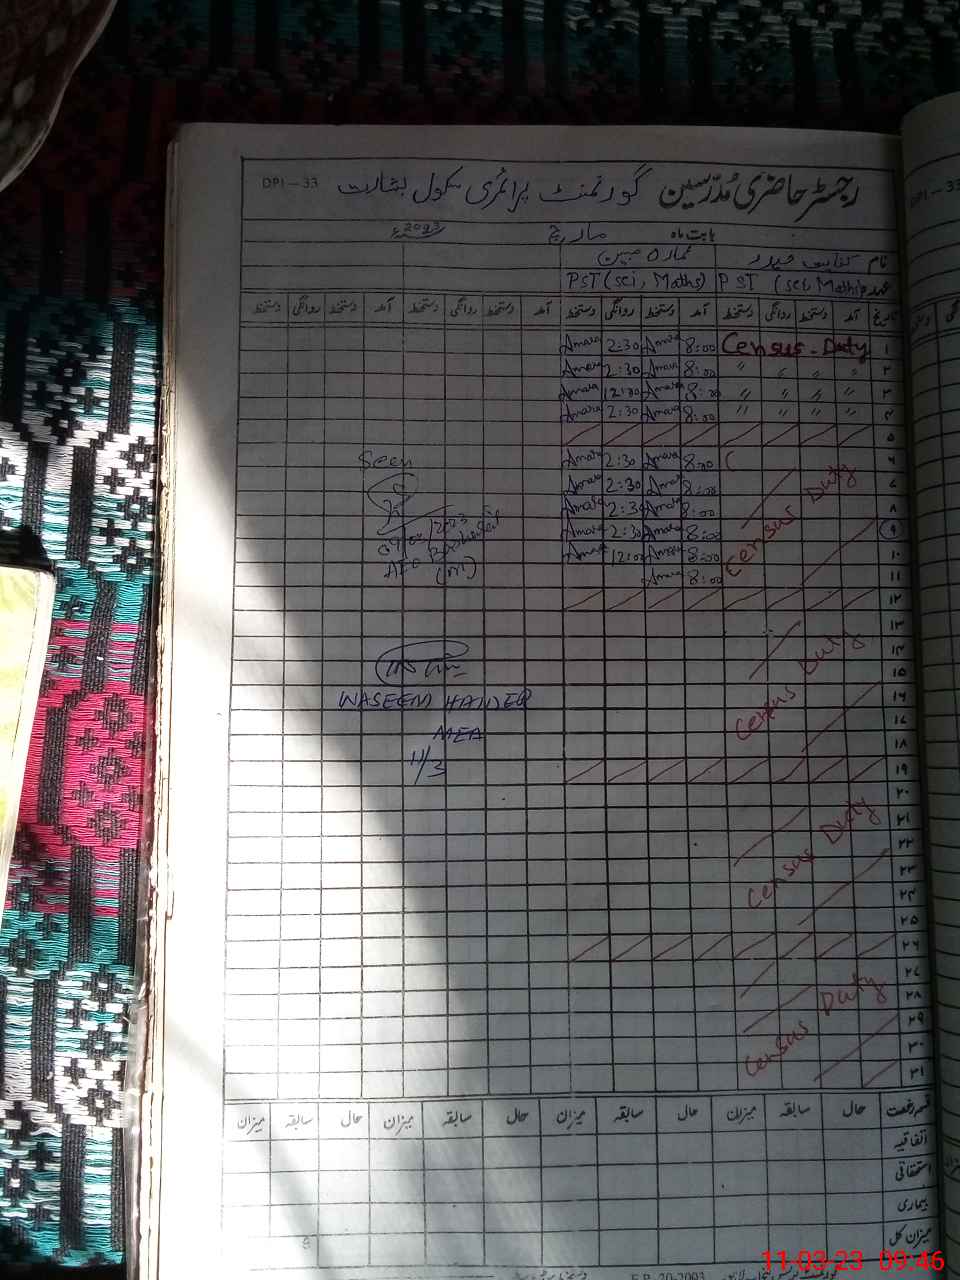 DPI – 33 رجسٹر حاضری مدرسین گورنمنٹ پرائمری سکول بشارت
بابت ماہ مارچ 2023ء
نام حیدر عمارہ مبین
عہدہ PST (sci, Maths) PST (sci, Maths)
تاریخ آمد دستخط روانگی دستخط آمد دستخط روانگی دستخط آمد دستخط روانگی دستخط آمد دستخط روانگی دستخط
۱ Census - Duty 8:00 Amara 2:30 Amara
۲ " " " " 8:00 Amara 2:30 Amara
۳ " " " " 8:00 Amara 12:00 Amara
۴ " " " " 8:00 Amara 2:30 Amara
۵
۶ 8:00 Amara 2:30 Amara
۷ 8:00 Amara 2:30 Amara
۸ 8:00 Amara 2:30 Amara
۹ 8:00 Amara 2:30 Amara
۱۰ 8:00 Amara 12:00 Amara
۱۱ 8:00 Amara
Census Duty
Seen
AEO
(M)
۱۲
۱۳
۱۴
۱۵
۱۶
۱۷
۱۸
Census Duty
WASEEM HAIDER
MEA
11/3
۱۹
۲۰
۲۱
۲۲
۲۳
۲۴
۲۵
Census Duty
۲۶
۲۷
۲۸
۲۹
۳۰
۳۱
Census Duty
قسم رخصت حال سابقہ میزان حال سابقہ میزان حال سابقہ میزان حال سابقہ میزان
اتفاقیہ
استحقاقی
بیماری
میزان کل
11-03-23 09:46